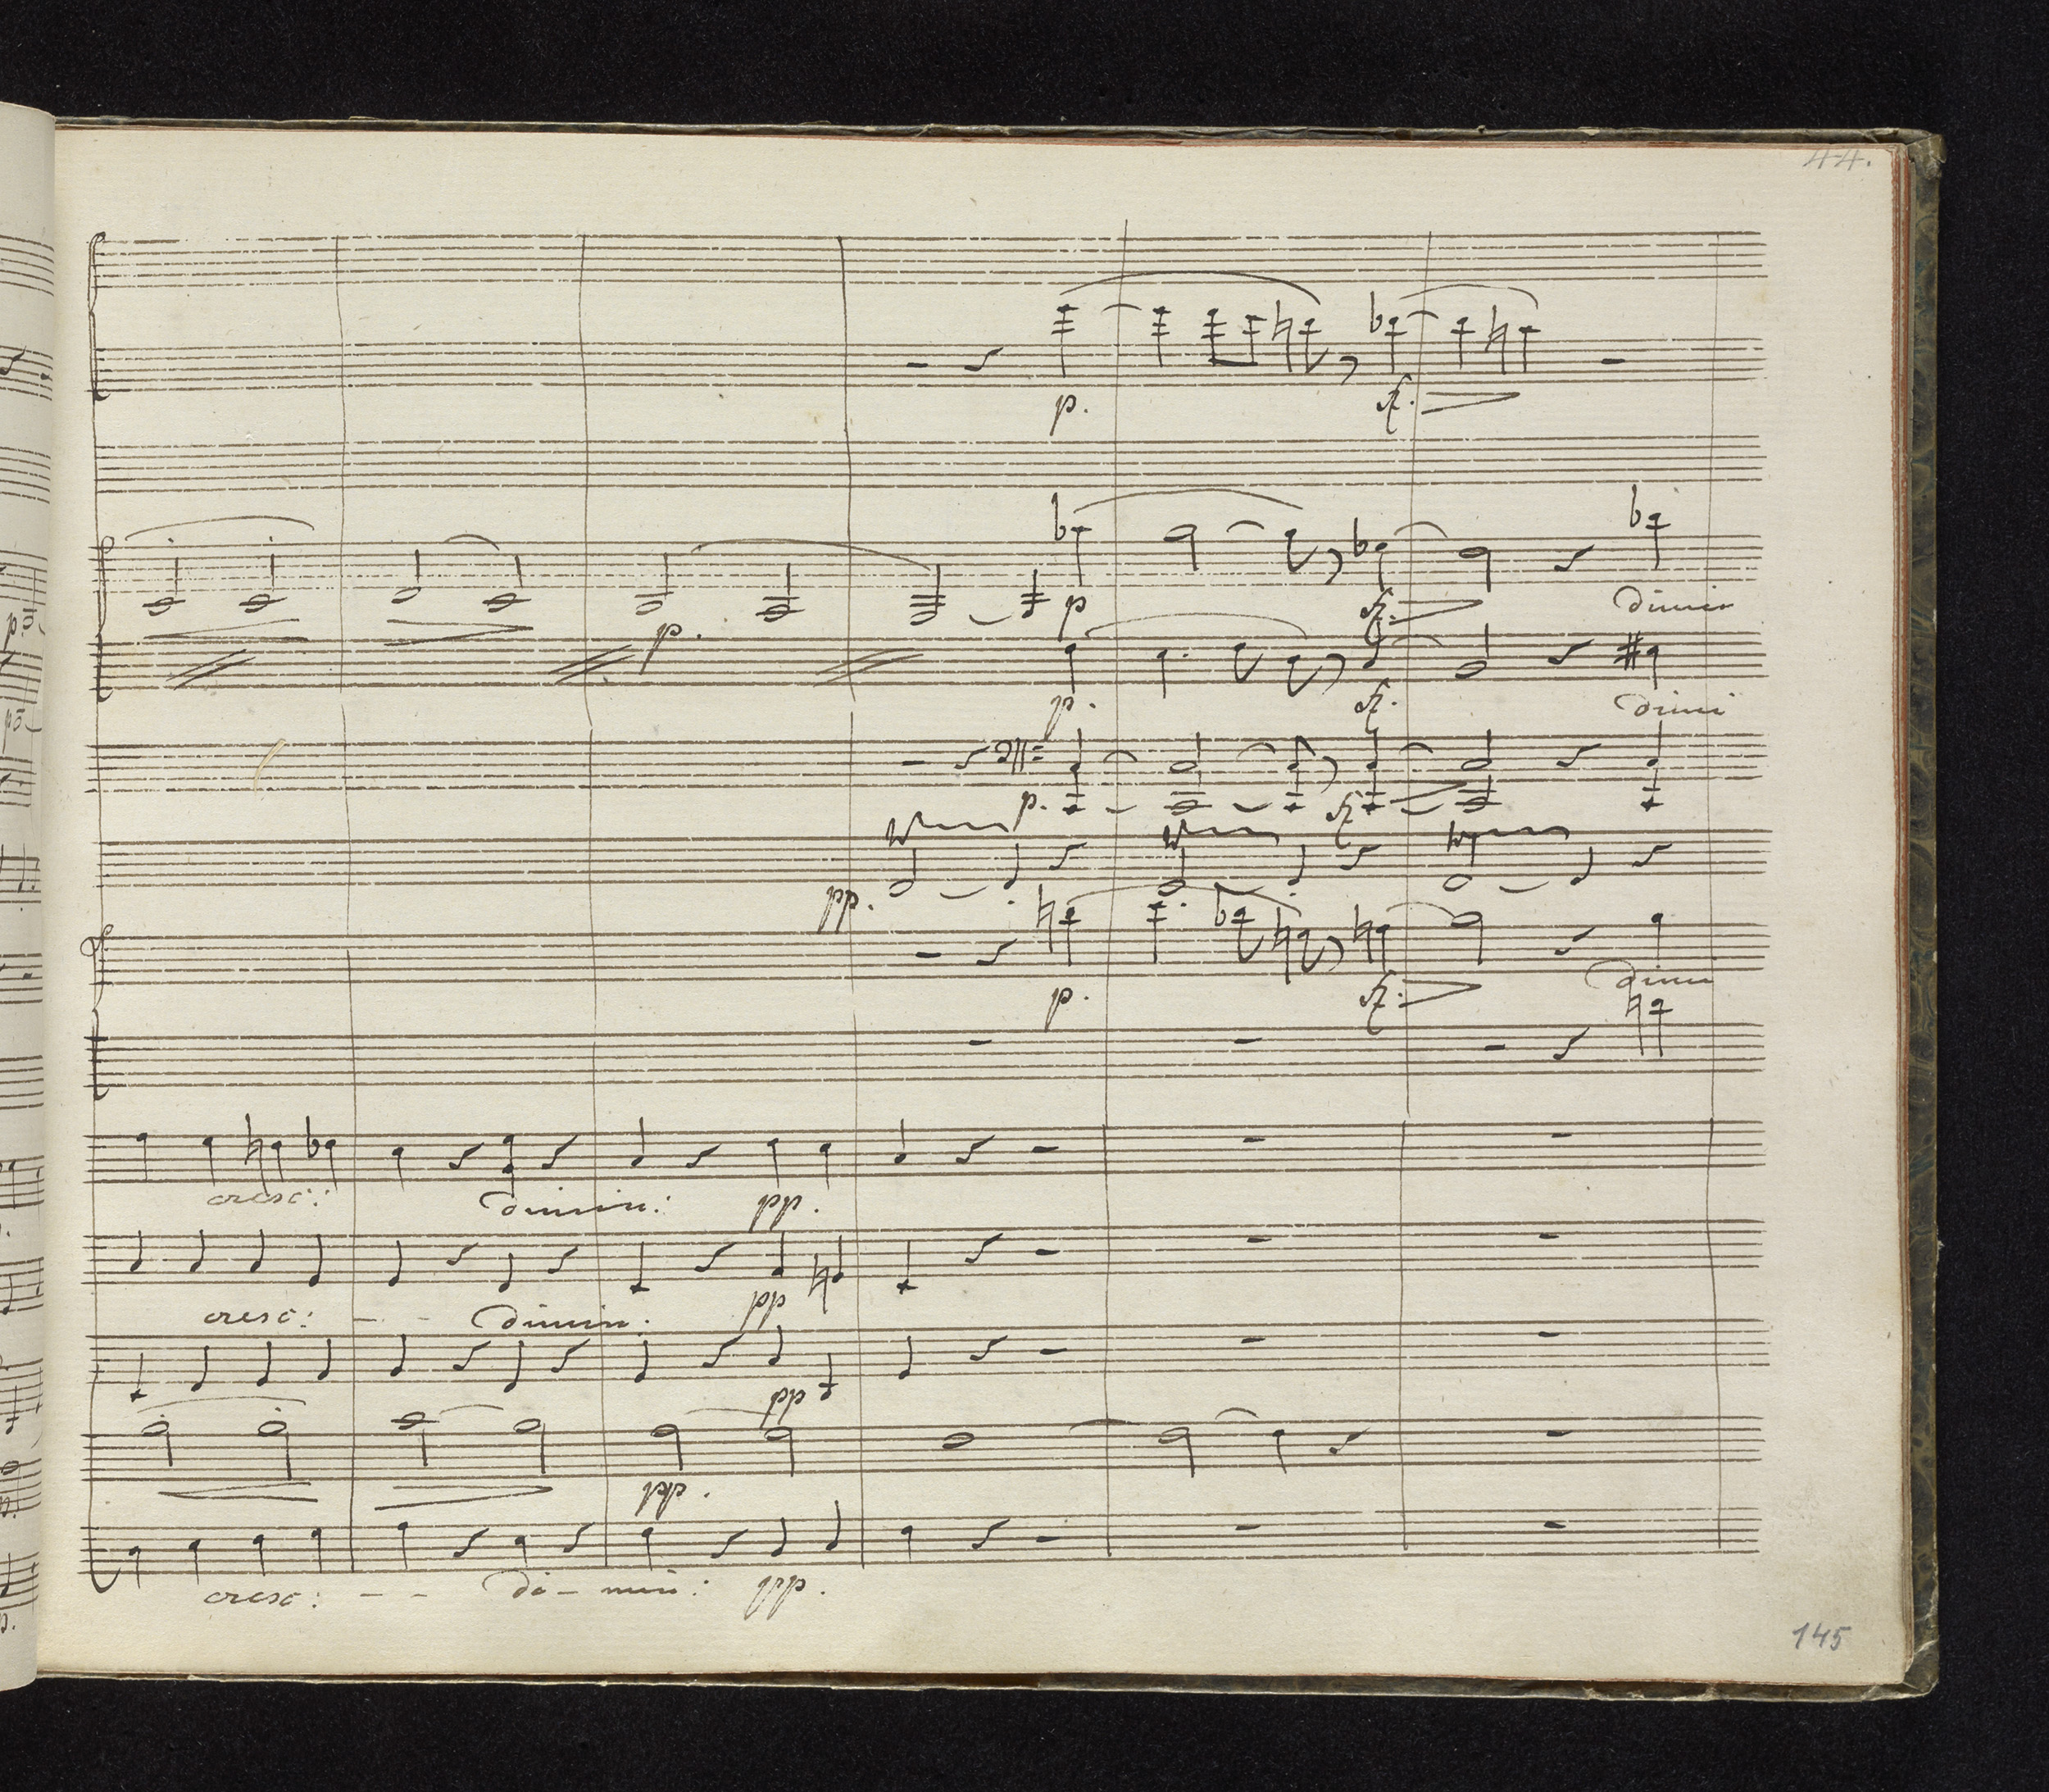 44.
p. sz.
p sz. dimin
p.
p. sz. dimi
p. sz.
pp.
p. sz. dimi
cresc: dimin: pp.
cresc: - - dimin: pp
pp
pp.
cresc: - - di - min: pp.
145